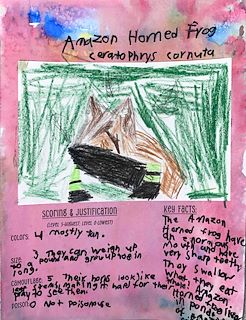 Amazon Horned frog
ceratophrys cornuta
Scoring & Justification
(Level 5-highest, Level 0-lowest)
Colors: 4 mostly tan.
Size: 3 They can weigh up
to pound and group
long.
Camouflage: 5 Their horns look like
leaves making it hard for their
pray to see them
Poison: 0 Not poisonous
Key Facts
The Amazon
Horned frog have
an enormous
Mouth and have
very sharp teeth
They swallow
what they eat
whole!
Amazon
Horned